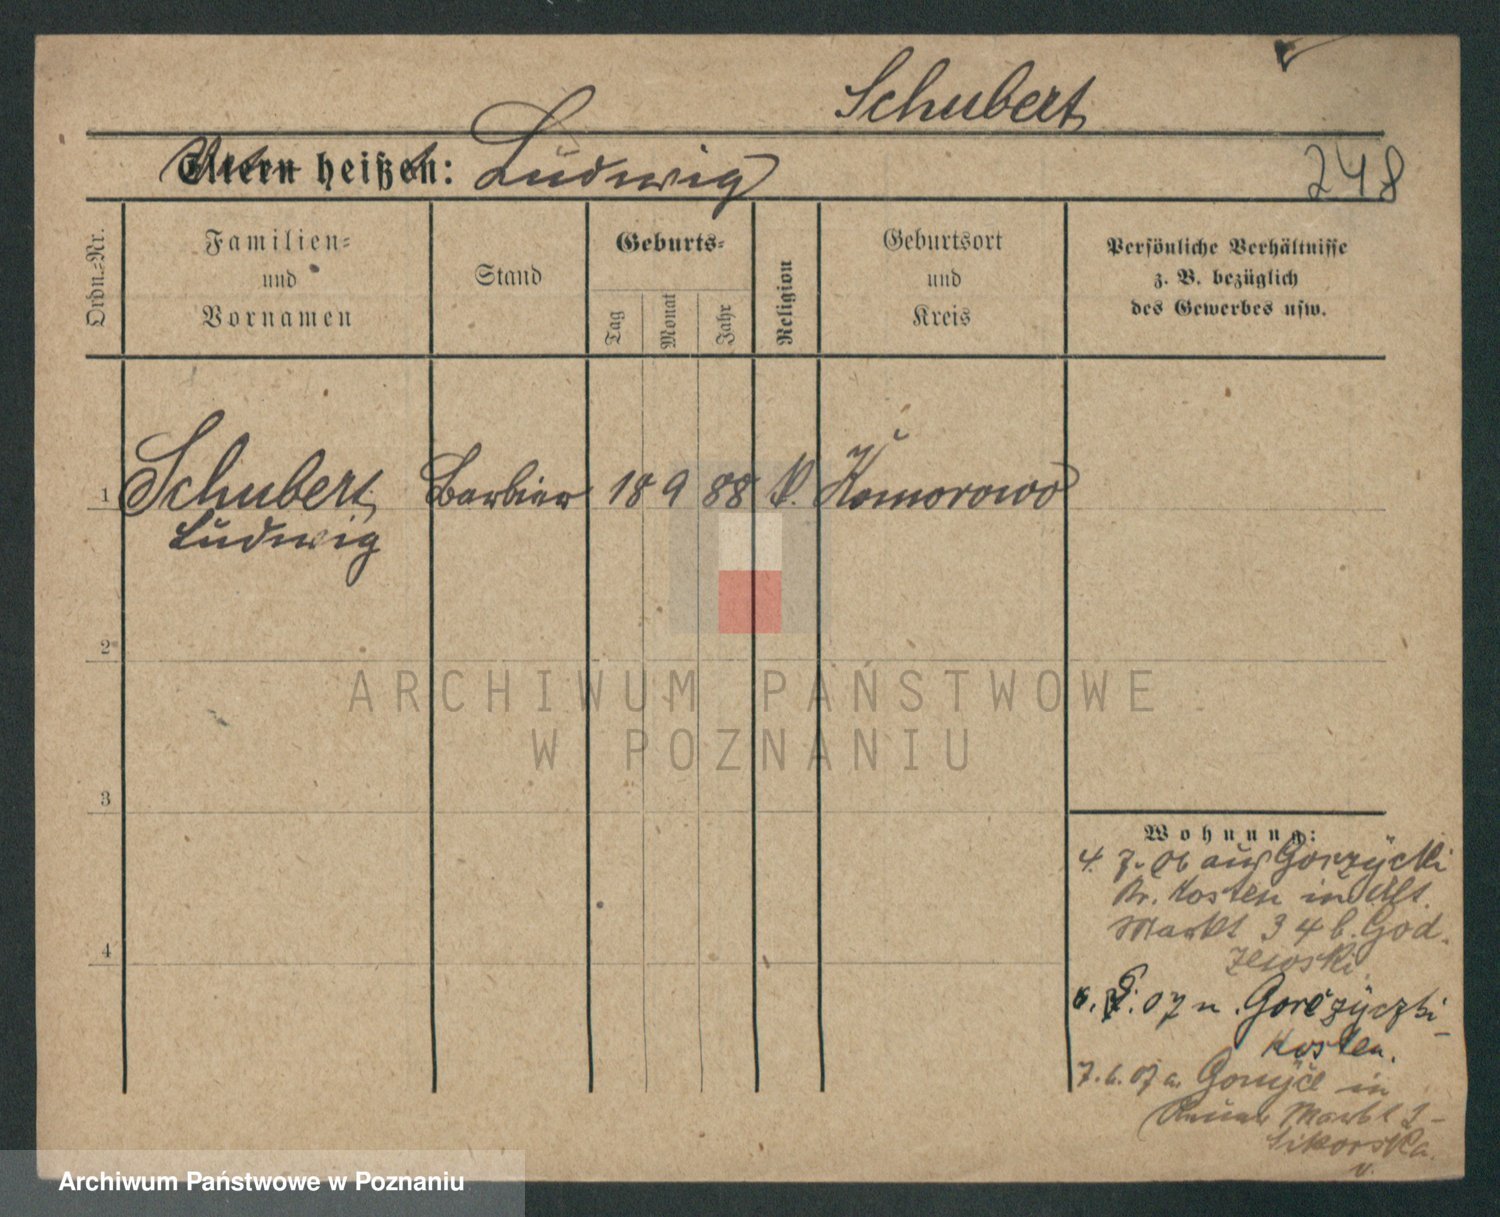 Schubert
Eltern heißen: Ludwig
248
Ordn.-Nr.
Familien-
und
Vornamen
Stand
Geburts-
Tag
Monat
Jahr
Religion
Geburtsort
und
Kreis
Persönliche Verhältnisse
z. B. bezüglich
des Gewerbes usw.
1 Schubert Barbier 18 9 88 k. Komorowo
Ludwig
2
3
4
Wohnung:
4. 7. 06 aus Gorzycki
Kr. Kosten in Alt.
Markt 34 b. God.
zewski
6. 07 n. Gorczyczki-
Kosten.
7. 6. 07 a. in
Neuer Markt
Sikorska.
ARCHIWUM PAŃSTWOWE
W POZNANIU
Archiwum Państwowe w Poznaniu